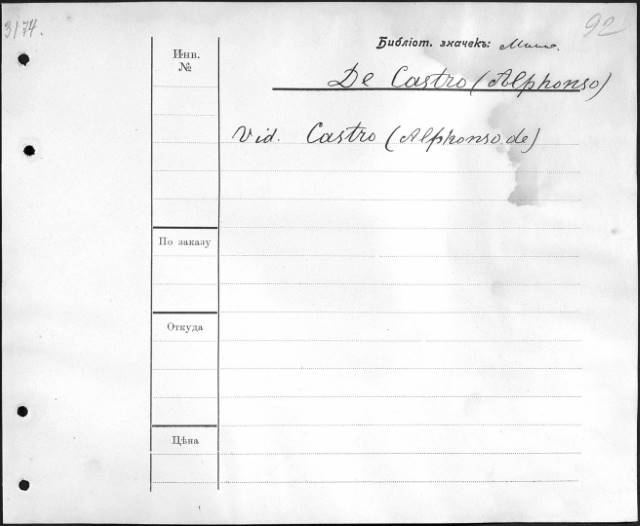 3174.
92
Библіот. значекъ:
Инв.
№
De Castro (Alphonso)
Vid. Castro (Alphonso de)
По заказу
Откуда
Цѣна